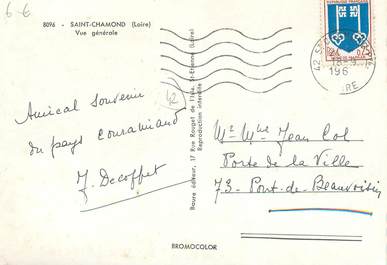 6-6
8096 - SAINT-CHAMOND (Loire)
Vue générale
Amical souvenir
du pays couramiaud
J. Decoffet
42
Baure éditeur, 17 Rue Rouget de l'Isle, St-Etienne (Loire)
Reproduction interdite
42 S
196
IRE
Mr Mme Jean Col
Porte de la Ville
73- Pont-de-Beauvoisin
BROMOCOLOR